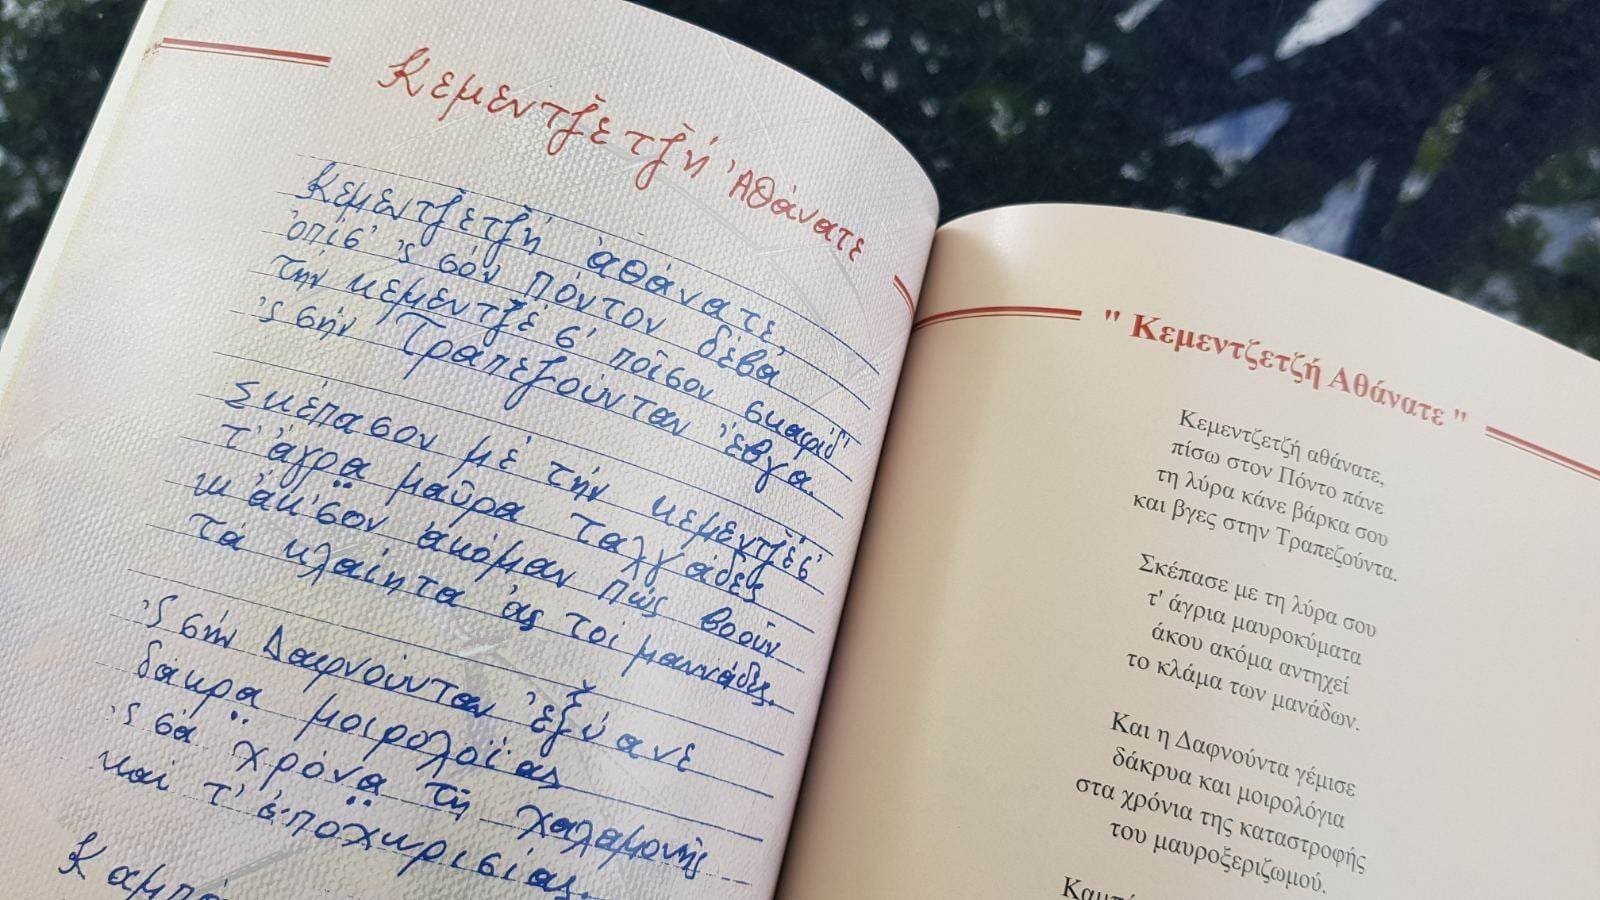 Κεμεντζ̌ετζ̌ή 'Αθάνατε
Κεμεντζ̌ετζ̌ή ἀθάνατε,
ὀπίσ' 'ς σόν Πόντον δέβα
τήν κεμεντζ̌έ σ' ποῖσον σκαφίδ'
'ς σήν Τραπεζούνταν ἔβγα.
Σκέπασον μέ τήν κεμεντζ̌έ σ'
τ' ἄγρα μαῦρα ταλγάδες
κι ἄκ'σον ἀκόμαν πώς βοούν
τά κλαίητα ἀς τοί μαννάδες.
'ς σήν Δαφνούνταν ἐξ̌ύανε
δάκρα μοιρολοΐας
'ς σά χ̈ρόνα τῆ χαλαμονῆς
καί τ' ἀποχ̈κρισίας.
Καμπά
" Κεμεντζετζή Αθάνατε "
Κεμεντζετζή αθάνατε,
πίσω στον Πόντο πάνε
τη λύρα κάνε βάρκα σου
και βγες στην Τραπεζούντα.
Σκέπασε με τη λύρα σου
τ' άγρια μαυροκύματα
άκου ακόμα αντηχεί
το κλάμα των μανάδων.
Και η Δαφνούντα γέμισε
δάκρυα και μοιρολόγια
στα χρόνια της καταστροφής
του μαυροξεριζωμού.